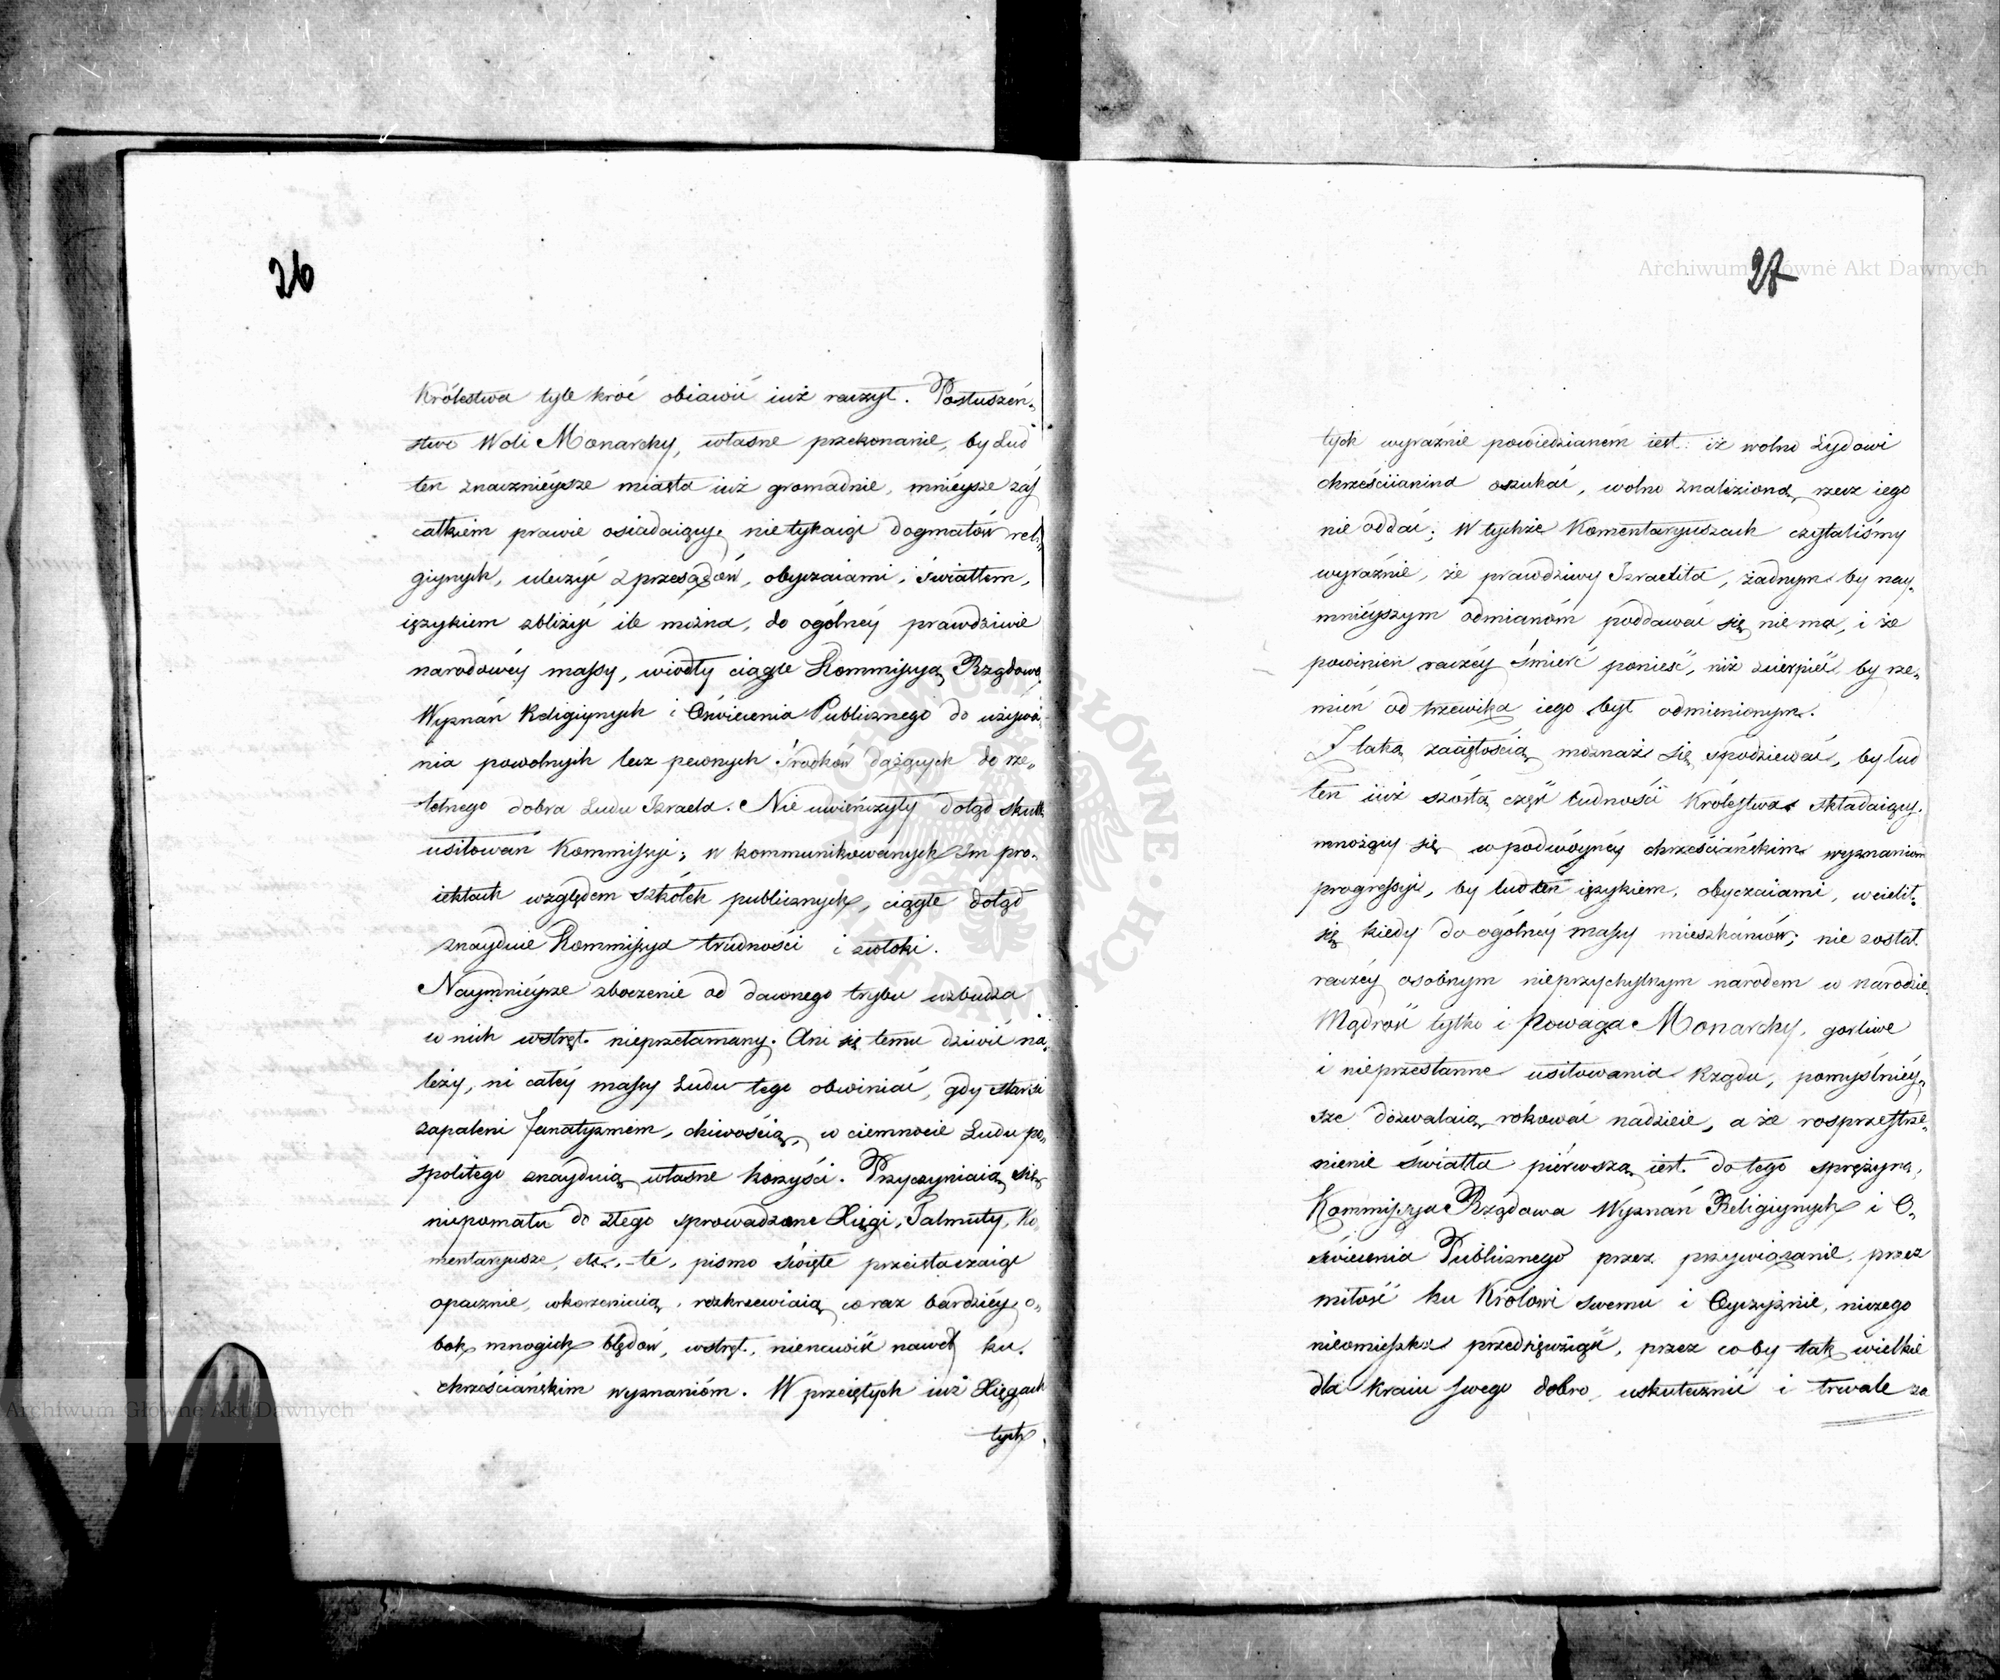 26
Królestwa tyle kroć obiawić iuż raczył. Posłuszeń-
stwo Woli Monarchy, własne przekonanie, by Lud
ten znacznieysze miasta iuż gromadnie, mnieysze zaś
całkiem prawie osiadaiący, nie tykaiąc dogmatów reli-
giynych, uleczyć z przesądów, obyczaiami, światłem,
ięzykiem zbliżyć ile można, do ogólnéy prawdziwie
narodowéy massy, wiodły ciągle Kommissyą Rządową
Wyznań Religiynych i Oświecenia Publicznego do używa-
nia powolnych lecz pewnych środków dążących do rze-
telnego dobra Ludu Izraela. Nie uwieńczyły dotąd skutki
usiłowań Kommissyi; w kommunikowanych Im pro-
iektach względem szkółek publicznych, ciągle dotąd
znayduie Kommissya trudności i zwłoki.
Naymnieysze zboczenie od dawnego trybu wzbudza
w nich wstręt nieprzełamany. Ani się temu dziwić na-
leży, ni całéy massy Ludu tego obwiniać, gdy starsi
zapaleni fanatyzmem, chciwością, w ciemnocie Ludu po-
spolitego znayduią własne korzyści. Przyczyniaią się
niepomału do złego sprowadzone Xięgi, Talmuty, Ko-
mentaryusze, etc. - te, pismo święte przeistaczaiąc
opacznie, wkorzeniaią, rozkrzewiaią coraz bardziéy o-
bok mnogich błędów, wstręt, nienawiść nawet ku
chrześciańskim wyznaniom. W przeiętych iuż Xięgach
tych
Archiwum Główne Akt Dawnych
27
Archiwum Główne Akt Dawnych
tych wyraźnie powiedzianem iest: iż wolno Żydowi
chrześciianina oszukać, wolno znalezioną rzecz iego
nie oddać; W tychże Komentaryuszach czytaliśmy
wyraźnie, że prawdziwy Izraelita, żadnym by nay-
mnieyszym odmianom poddawać się nie ma, i że
powinien raczéy śmierć ponieść, niż zcierpieć, by rze-
mień od trzewika iego był odmienionym.
Z taką zaciętością możnaż się spodziewać, by lud
ten iuż szóstą część ludności Królestwa składaiący,
mnożący się w podwóynéy chrześciańskim wyznaniom
progressyi, by lud ten ięzykiem, obyczaiami, wcielił
się kiedy do ogólnéy massy mieszkańców; nie został
raczéy osobnym nieprzychylnym narodem w narodzie.
Mądrość tylko i Powaga Monarchy, gorliwe
i nieprzestanne usiłowania Rządu, pomyślniey-
sze dozwalaią rokować nadzieie, a że rosprzestrze-
nienie światła pierwszą iest do tego sprężyną,
Kommissya Rządowa Wyznań Religiynych i O-
świecenia Publicznego przez przywiązanie, przez
miłość ku Królowi swemu i Oyczyznie, niczego
nieomieszka przedsięwziąść, przez co by tak wielkie
dla Kraiu swego dobro, uskutecznić i trwale za
ARCHIWUM GŁÓWNE AKT DAWNYCH